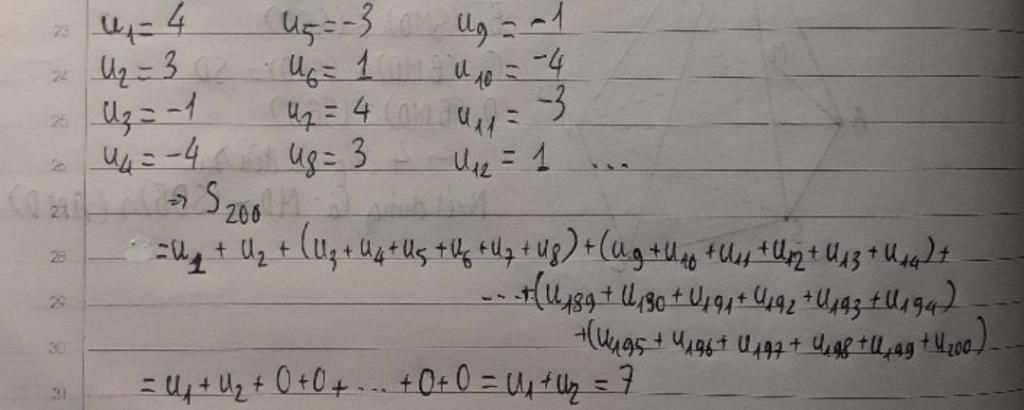 23 u₁ = 4 u₅ = -3 u₉ = -1
24 u₂ = 3 u₆ = 1 u₁₀ = -4
25 u₃ = -1 u₇ = 4 u₁₁ = -3
26 u₄ = -4 u₈ = 3 u₁₂ = 1 ...
27 ⇒ S₂₀₀
28 = u₁ + u₂ + (u₃ + u₄ + u₅ + u₆ + u₇ + u₈) + (u₉ + u₁₀ + u₁₁ + u₁₂ + u₁₃ + u₁₄) +
29 ... + (u₁₈₉ + u₁₉₀ + u₁₉₁ + u₁₉₂ + u₁₉₃ + u₁₉₄)
30 + (u₁₉₅ + u₁₉₆ + u₁₉₇ + u₁₉₈ + u₁₉₉ + u₂₀₀)
31 = u₁ + u₂ + 0 + 0 + ... + 0 + 0 = u₁ + u₂ = 7